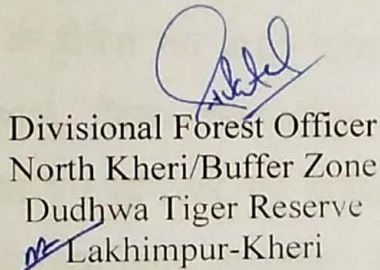 Divisional Forest Officer
North Kheri/Buffer Zone
Dudhwa Tiger Reserve
Lakhimpur-Kheri